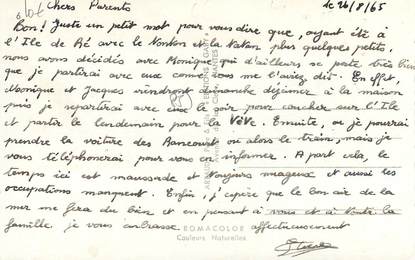 Chers Parents le 26/8/65
Bon! Juste un petit mot pour vous dire que, ayant été à
l'Ile de Ré avec le Tonton et la Tatan plus quelques petits,
nous avons décidés avec Monique qui d'ailleurs se porte très bien
que je partirai avec eux comme vous me l'aviez dit. En effet,
Monique et Jacques viendront dimanche déjeuner à la maison
puis je repartirai avec eux le soir pour coucher sur l'Ile
et partir le lendemain pour la Ensuite, ou je pourrai
prendre la voiture des Rancourt ou alors le train, mais je
vous téléphonerai pour vous en informer. A part cela, le
temps ici est maussade et toujours nuageux et aussi les
occupations manquent. Enfin, j'espère que le bon air de la
mer me fera du bien et en pensant à vous et à toute la
famille, je vous embrasse affectueusement
ROMACOLOR
Couleurs Naturelles